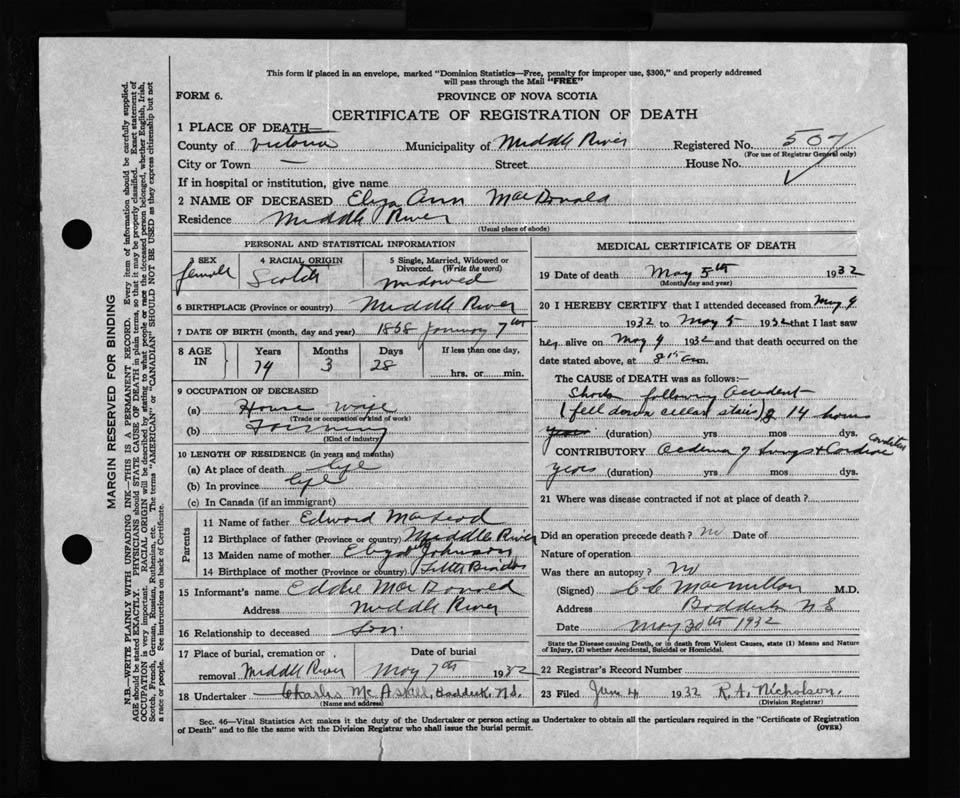 This form if placed in an envelope, marked "Dominion Statistics—Free, penalty for improper use, $300," and properly addressed
will pass through the Mail "FREE"
FORM 6.
PROVINCE OF NOVA SCOTIA
CERTIFICATE OF REGISTRATION OF DEATH
1 PLACE OF DEATH—
County of Victoria Municipality of Middle River Registered No. 507
(For use of Registrar General only)
City or Town — Street House No.
If in hospital or institution, give name
2 NAME OF DECEASED Eliza Ann MacDonald
Residence Middle River
(Usual place of abode)
PERSONAL AND STATISTICAL INFORMATION
3 SEX 4 RACIAL ORIGIN 5 Single, Married, Widowed or
Divorced. (Write the word)
female Scotch Widowed
6 BIRTHPLACE (Province or country) Middle River
7 DATE OF BIRTH (month, day and year) 1858 January 7th
8 AGE IN Years Months Days If less than one day,
74 3 28 hrs. or min.
9 OCCUPATION OF DECEASED
(a) House wife
(Trade or occupation or kind of work)
(b) Farming
(Kind of industry)
10 LENGTH OF RESIDENCE (in years and months)
(a) At place of death life
(b) In province life
(c) In Canada (if an immigrant)
Parents
11 Name of father Edward MacLeod
12 Birthplace of father (Province or country) Middle River
13 Maiden name of mother Johnson
14 Birthplace of mother (Province or country) Little
15 Informant's name Eddie MacDonald
Address Middle River
16 Relationship to deceased Son
17 Place of burial, cremation or removal Date of burial
Middle River May 7th 1932
18 Undertaker Charles McAskill, Baddeck, N.S.
(Name and address)
MEDICAL CERTIFICATE OF DEATH
19 Date of death May 5th 1932
(Month, day and year)
20 I HEREBY CERTIFY that I attended deceased from May 4
1932 to May 5 1932 that I last saw
her alive on May 4 1932 and that death occurred on the
date stated above, at m.
The CAUSE OF DEATH was as follows:—
Shock following accident
(fell down cellar stairs) 14 hours
years (duration) yrs mos dys.
CONTRIBUTORY Oedema of lungs & Cardiac condition
years (duration) yrs mos dys.
21 Where was disease contracted if not at place of death?
Did an operation precede death? no Date of
Nature of operation
Was there an autopsy? No
(Signed) C L MacMillan M.D.
Address Baddeck N S
Date May 30th 1932
State the Disease causing Death, or in death from Violent Causes, state (1) Means and Nature
of Injury, (2) whether Accidental, Suicidal or Homicidal.
22 Registrar's Record Number
23 Filed June 4 1932 R.A. Nicholson,
(Division Registrar)
Sec. 46—Vital Statistics Act makes it the duty of the Undertaker or person acting as Undertaker to obtain all the particulars required in the "Certificate of Registration
of Death" and to file the same with the Division Registrar who shall issue the burial permit. (OVER)
MARGIN RESERVED FOR BINDING
N.B.—WRITE PLAINLY WITH UNFADING INK—THIS IS A PERMANENT RECORD. Every item of information should be carefully supplied.
AGE should be stated EXACTLY. PHYSICIANS should STATE CAUSE OF DEATH in plain terms, so that it may be properly classified. Exact statement of
OCCUPATION is very important. RACIAL ORIGIN will be described by stating to what people or race the deceased person belonged, whether English, Irish,
Scotch, French, German, Russian, Ruthenian, etc. The terms "AMERICAN" or "CANADIAN" SHOULD NOT BE USED as they express citizenship but not
a race or people. See instructions on back of Certificate.